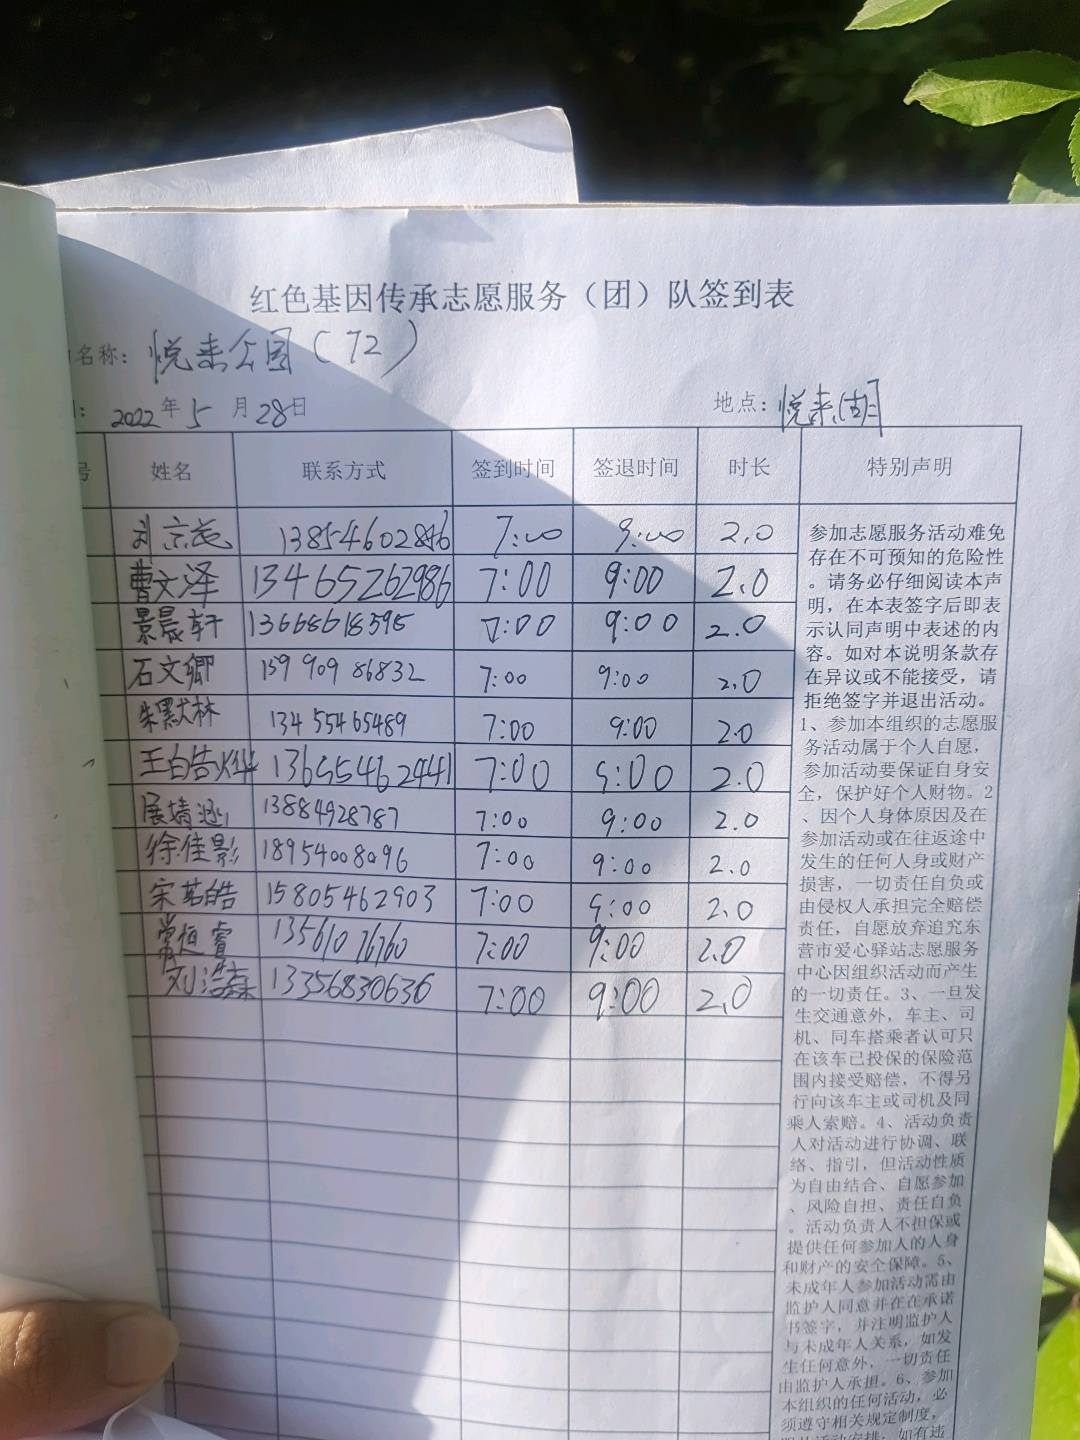 红色基因传承志愿服务（团）队签到表
名称：悦来公园（72）
2022年5月28日 地点：悦来湖
号 姓名 联系方式 签到时间 签退时间 时长 特别声明
刘京 7:00 9:00 2.0
曹文泽 13465262986 7:00 9:00 2.0
景晨轩 13668618595 7:00 9:00 2.0
石文卿 159 909 86832 7:00 9:00 2.0
朱默林 134 55465489 7:00 9:00 2.0
王白告烨 13655462441 7:00 9:00 2.0
展靖 13884928787 7:00 9:00 2.0
徐佳影 18954008096 7:00 9:00 2.0
宋茗皓 15805462903 7:00 9:00 2.0
常恒睿 135610 76760 7:00 9:00 2.0
刘浩森 13356830636 7:00 9:00 2.0
参加志愿服务活动难免
存在不可预知的危险性
。请务必仔细阅读本声
明，在本表签字后即表
示认同声明中表述的内
容。如对本说明条款存
在异议或不能接受，请
拒绝签字并退出活动。
1、参加本组织的志愿服
务活动属于个人自愿，
参加活动要保证自身安
全，保护好个人财物。2
、因个人身体原因及在
参加活动或在往返途中
发生的任何人身或财产
损害，一切责任自负或
由侵权人承担完全赔偿
责任，自愿放弃追究东
营市爱心驿站志愿服务
中心因组织活动而产生
的一切责任。3、一旦发
生交通意外，车主、司
机、同车搭乘者认可只
在该车已投保的保险范
围内接受赔偿，不得另
行向该车主或司机及同
乘人索赔。4、活动负责
人对活动进行协调、联
络、指引，但活动性质
为自由结合、自愿参加
、风险自担、责任自负
。活动负责人不担保或
提供任何参加人的人身
和财产的安全保障。5、
未成年人参加活动需由
监护人同意并在在承诺
书签字，并注明监护人
与未成年人关系，如发
生任何意外，一切责任
由监护人承担。6、参加
本组织的任何活动，必
须遵守相关规定制度，
服从活动安排；如有违